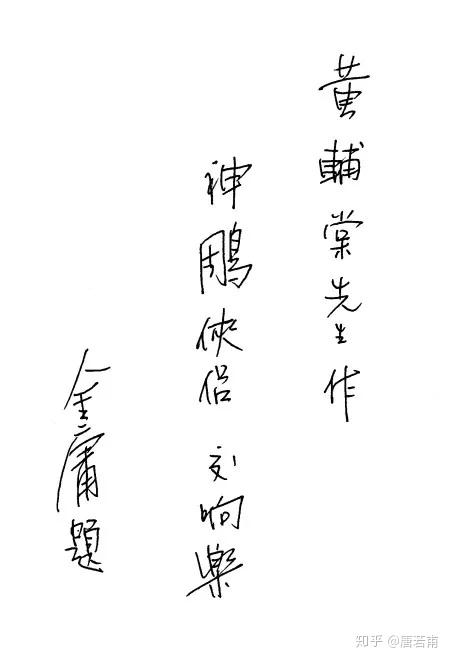 黃輔棠先生作
神鵰俠侶 交响樂
金庸題
知乎 @唐若甫